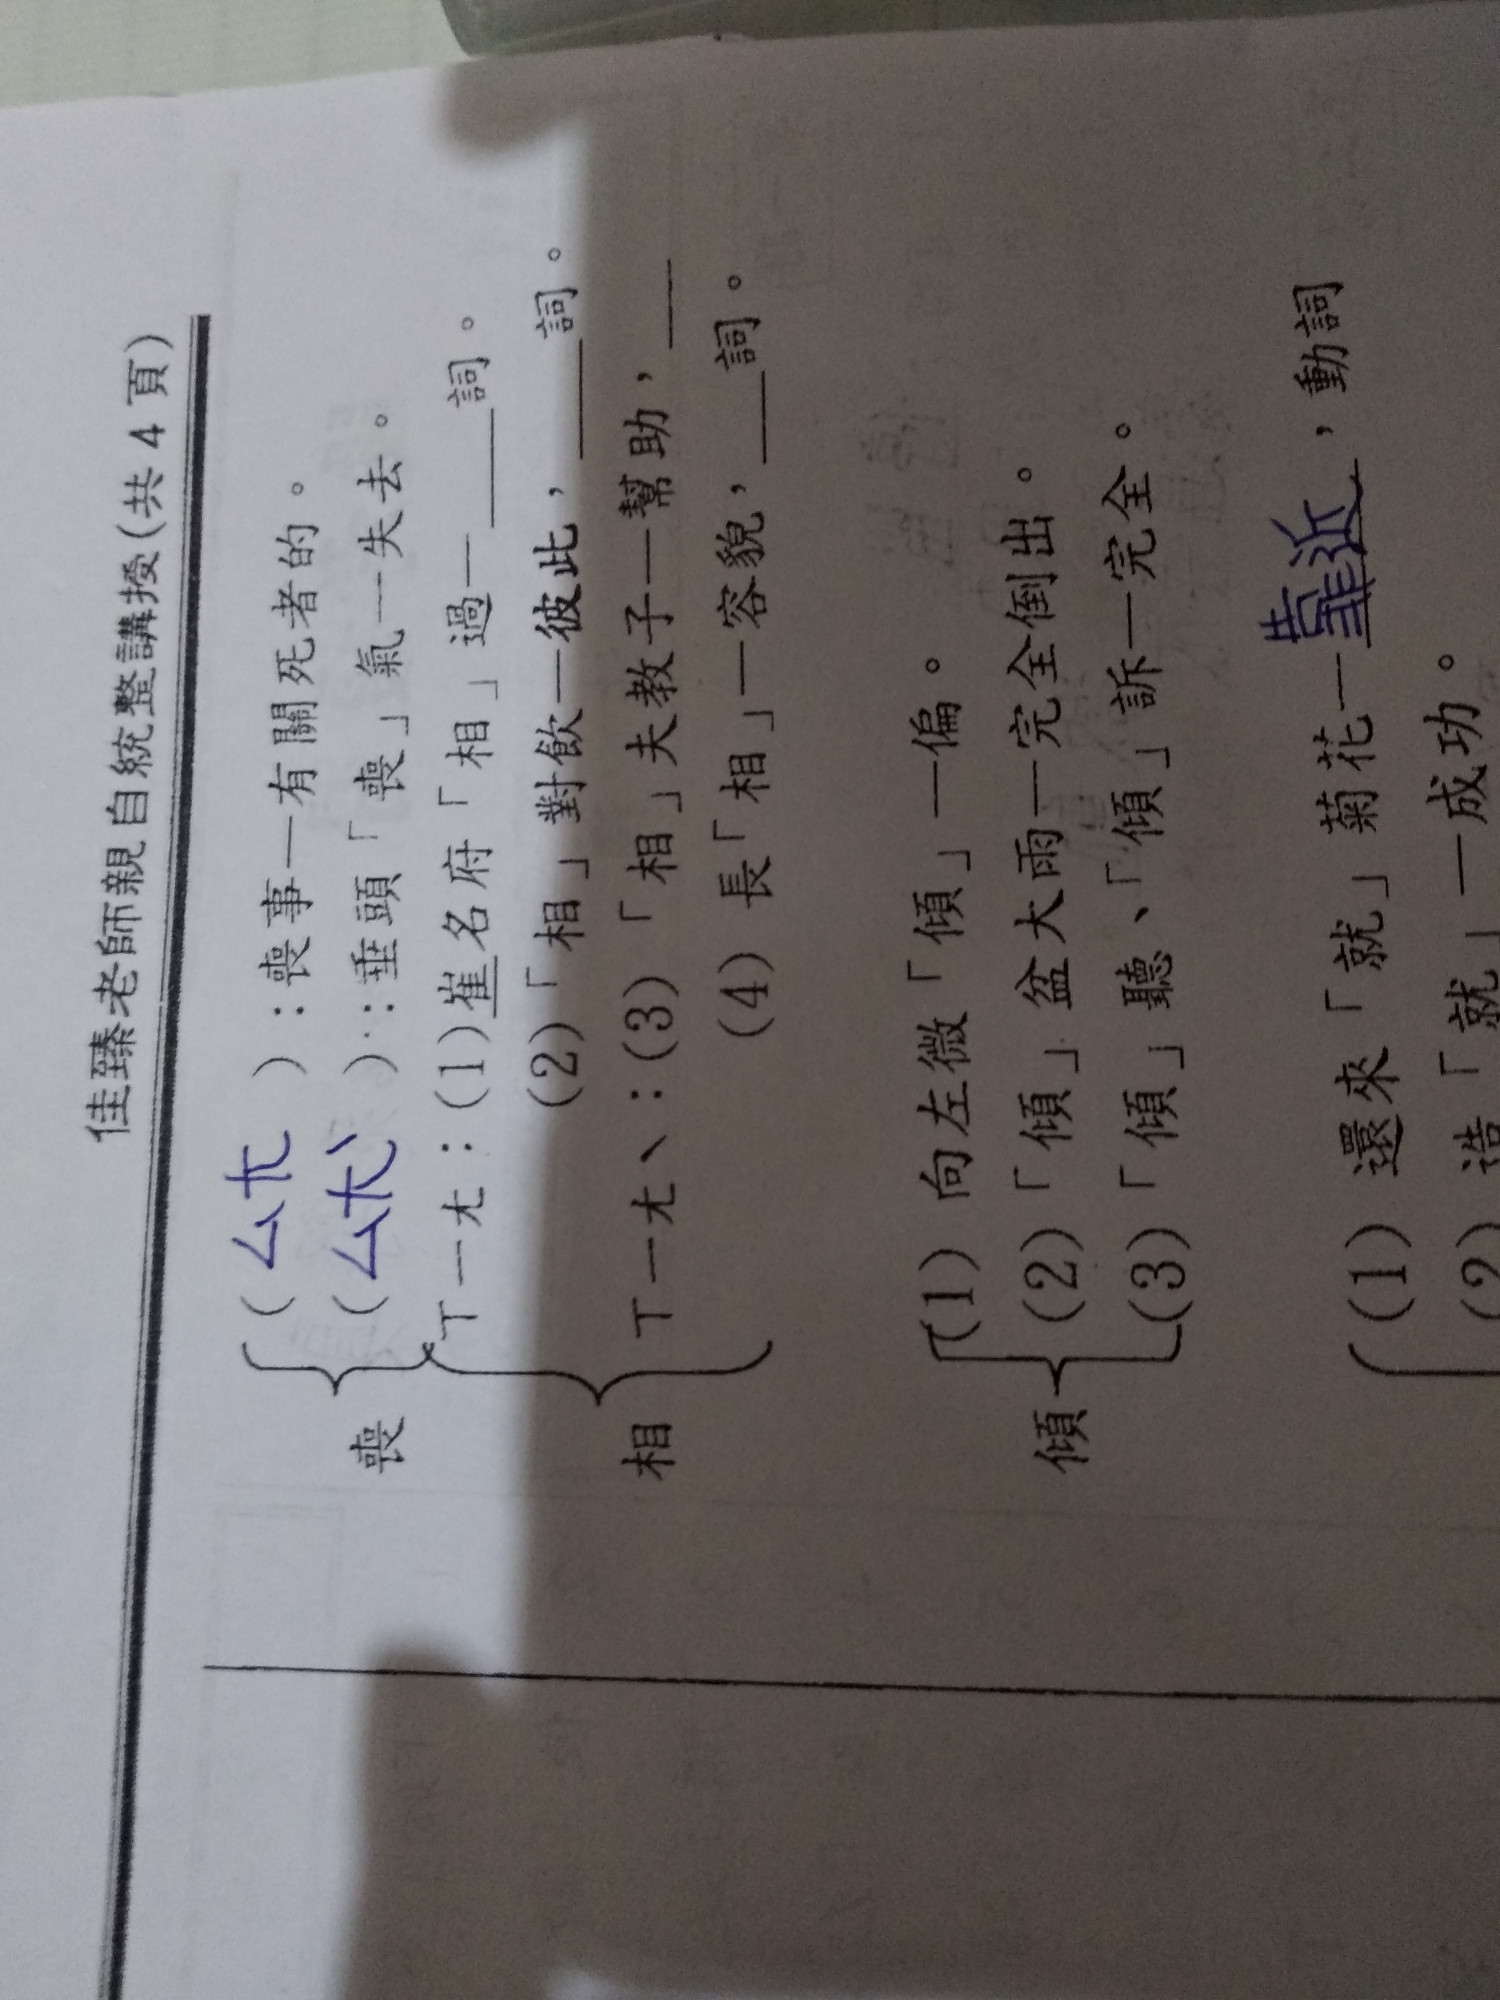 佳臻老師親自統整講授(共 4 頁)
喪
(ㄙㄤ ):喪事—有關死者的。
(ㄙㄤˋ):垂頭「喪」氣—失去。
相
ㄒㄧㄤ:(1)崔名府「相」過—____詞。
(2)「相」對飲—彼此,____詞。
ㄒㄧㄤˋ:(3)「相」夫教子—幫助,___
(4) 長「相」—容貌,___詞。
傾
(1) 向左微「傾」—偏。
(2)「傾」盆大雨—完全倒出。
(3)「傾」聽、「傾」訴—完全。
(1) 還來「就」菊花—靠近,動詞
(2) 造「就」—成功。